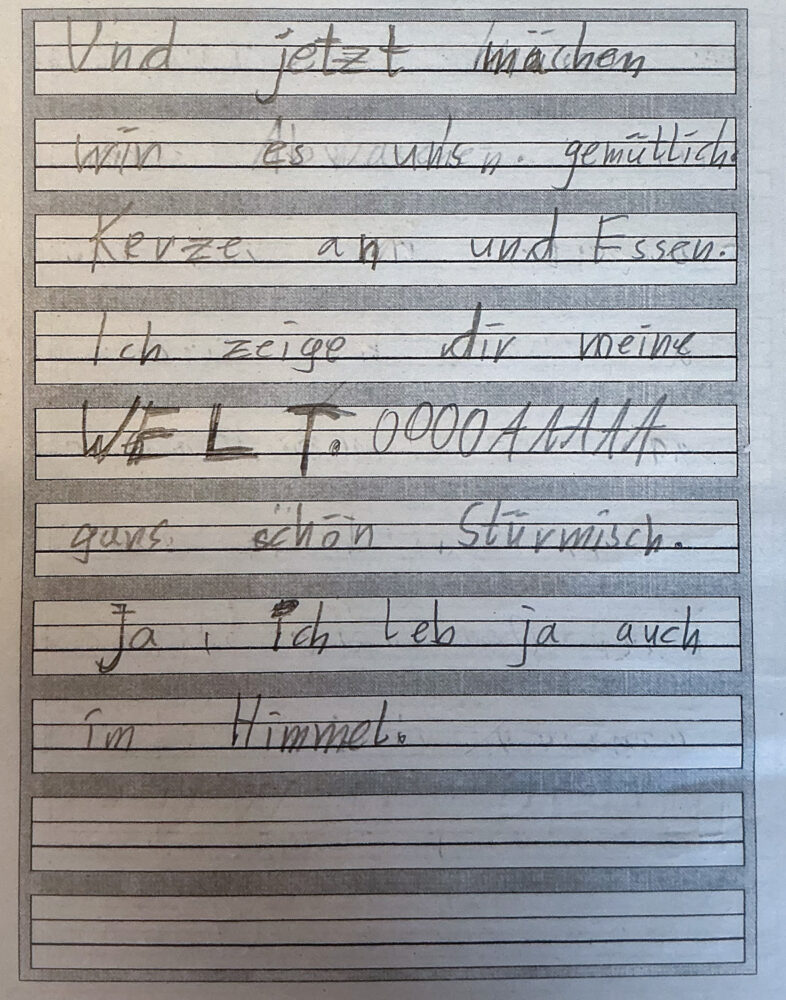 Und jetzt machen
wir es uns gemütlich.
Kerze an und Essen.
Ich zeige dir meine
WELT. OOOOAAAAA
gans schön Stürmisch.
Ja, Ich leb ja auch
im Himmel.